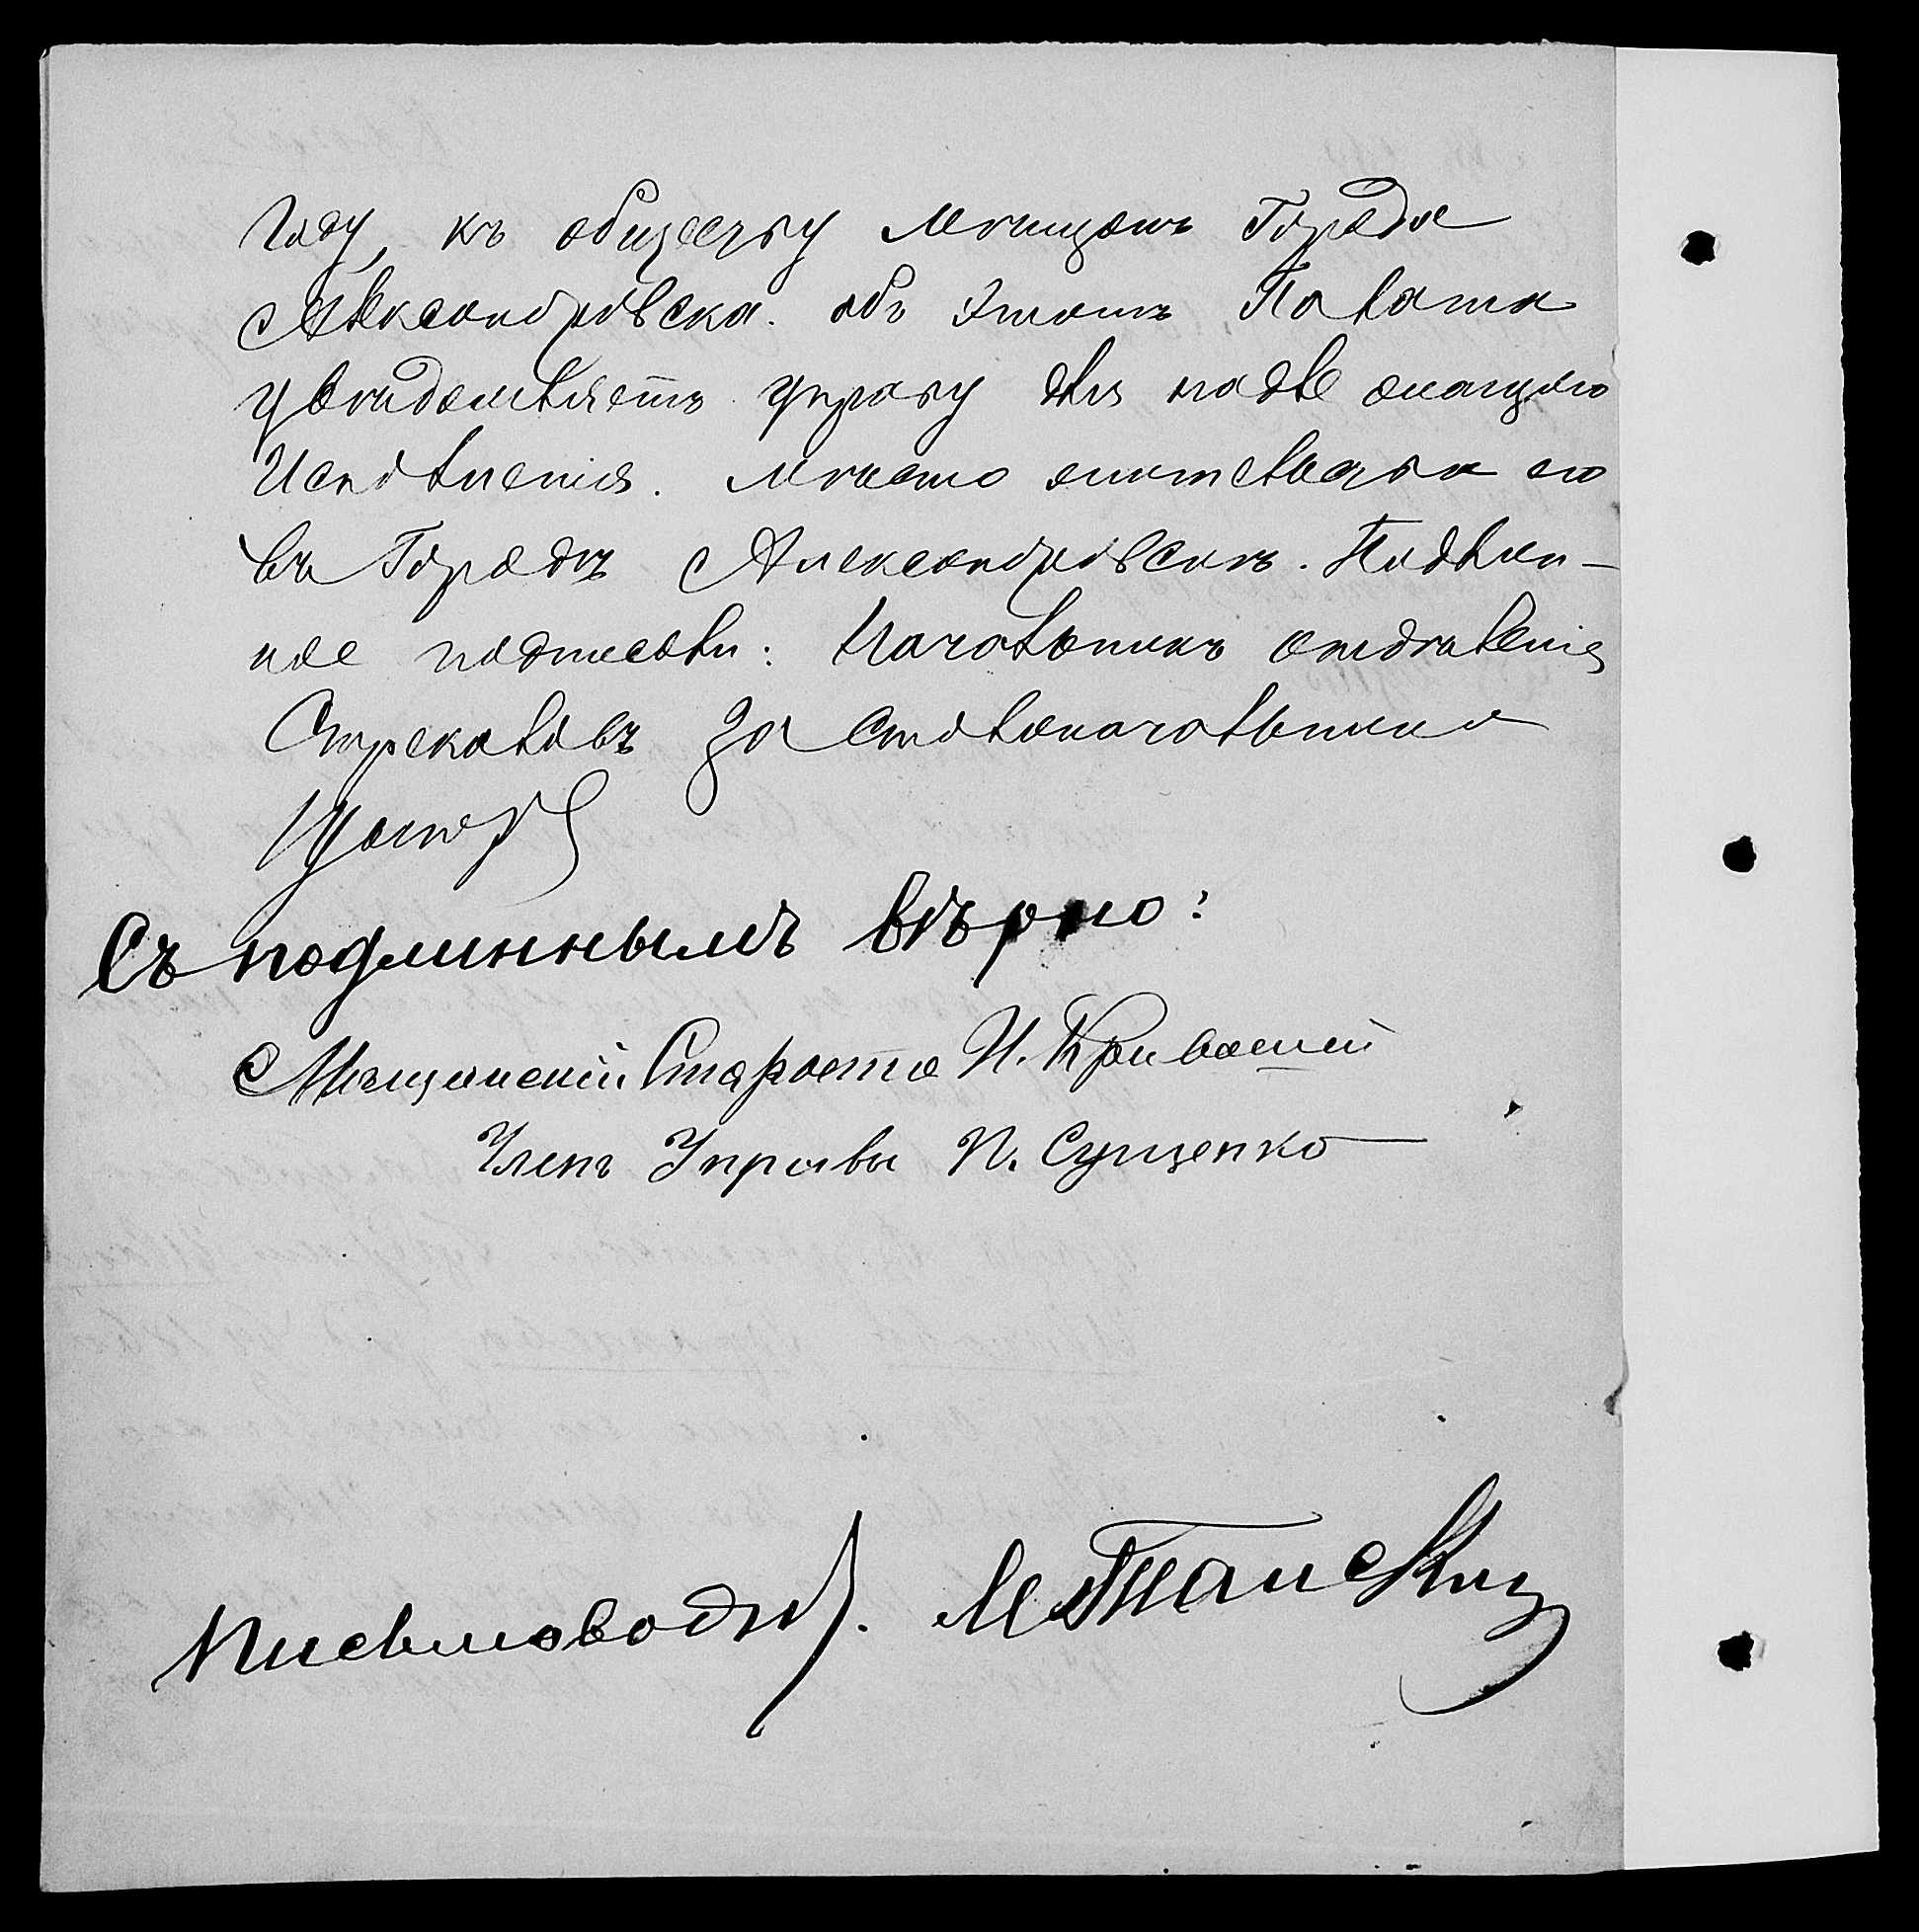 году, къ обществу мѣщанъ Города
Александровска. объ этомъ Палата
увѣдомляетъ управу для надлежащаго
Исполненія. Мѣсто жительства его
въ Городѣ Александровскѣ. Подлин-
ное подписали: Начальникъ отдѣленія
Стрекаловъ За Столоначальника
Съ подлиннымъ вѣрно:
Мѣщанскій Староста И. Кривошей
Членъ Управы И. Сущенко
Письмоводит. М. Танскій